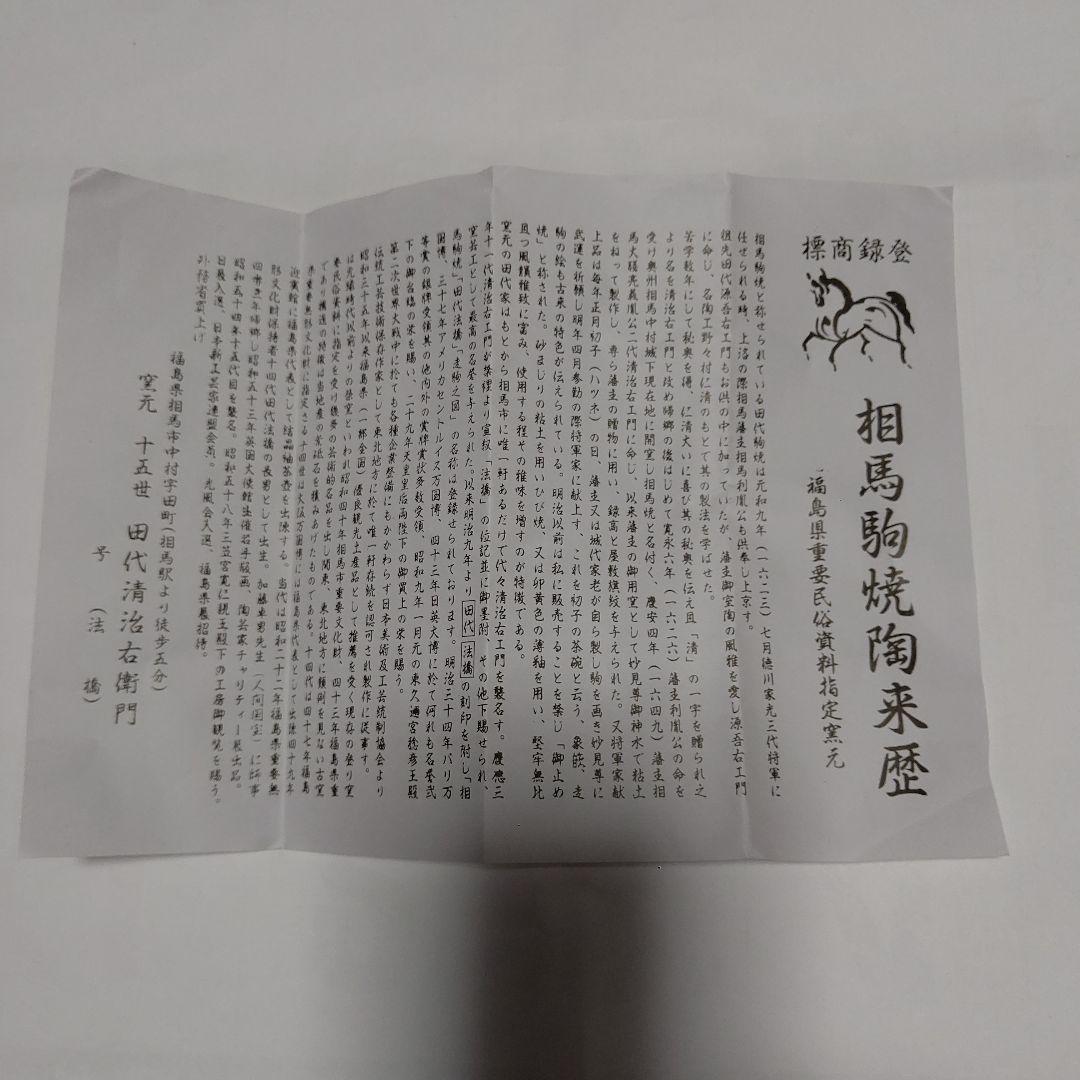 標商録登
相馬駒焼陶来歴
福島県重要民俗資料指定窯元
相馬駒焼と称せられている田代駒焼は元和九年(一六二三)七月徳川家光三代将軍に
任ぜられる時、上洛の際相馬藩主相馬利胤公も供奉し上京す。
祖先田代源吾右エ門もお供の中に加っていたが、藩主御室陶の風雅を愛し源吾右エ門
に命じ、名陶工野々村仁清のもとて其の製法を学ばせた。
苦学数年にして秘奥を得、仁清大いに喜び其の秘奥を伝え且「清」の一字を贈られ之
より名を清治右エ門と改め帰郷の後はじめて寛永六年(一六二六)藩主利胤公の命を
受け奥州相馬中村城下現在地に開窯し相馬焼と名付く、慶安四年(一六四九)藩主相
馬大膳亮義胤公二代清治右エ門に命じ、以来藩主の御用窯として妙見尊御神水で粘土
をねって製作し、専ら藩主の贈物に用い、録高と屋敷扶紋を与えられた。又将軍家献
上品は毎年正月初子(ハツネ)の日、藩主又は城代家老が自ら製し駒を画き妙見尊に
武運を祈願し明年四月参勤の際将軍家に献上す、これを初子の茶碗と云う、象嵌、走
駒の絵も古来の特色が伝えられている。明治以前は私に販売することを禁じ「御止め
焼」と称された。砂まじりの粘土を用いひび焼、又は卵黄色の薄釉を用い、堅牢無比
且つ風韻雅致に富み、使用する程その雅味を増すのが特徴である。
窯元の田代家はもとから相馬市に唯一軒あるだけで代々清治右エ門を襲名す。慶應三
年十一代清治右エ門が禁裡より宣叙「法橋」の位記並に御墨附、その他下賜せられ、
窯芸工として最高の名誉を与えられた。以来明治九年より田代法橋の刻印を附し「相
馬駒焼」田代法橋「走駒之図」の名称は登録せられております。明治三十四年パリ万
国博、三十七年アメリカセントルイス万国博、四十三年日英大博に於て何れも名誉弐
等賞の銀牌受領其の他内外の賞牌賞状多数受領、昭和九年一月元の東久邇宮稔彦王殿
下の御台臨の栄を賜い、二十九年天皇皇后両陛下の御買上の栄を賜う。
第二次世界大戦中に於ても各種企業整備にもかかわらず日本美術及工芸統制協会より
伝統工芸技術保存作家として東北地方に於て唯一軒存続を認可され製作に従事す。
昭和三十五年以来福島県(一部全国)優良観光土産品として推薦を受く現存の登り窯
は元禄時代以前よりの祭窯といわれ昭和四十年相馬市重要文化財、四十三年福島県重
要民俗資料に指定を受け幾多の芸術的名品を出し関東、東北地方に類例を見ない古窯
であり構造の特徴は当地産の岩砥石を積みあげたものである。十四代は四十七年福島
県重要無形文化財に指定さる十四世は大阪万国博には福島県代表として出陳四十九年
迎賓館に福島県代表として結晶袖茶壺を出陳する。当代は昭和二十二年福島県重要無
形文化財保持者十四代田代法橋の長男として出生。加藤土師男先生(人間国宝)に師事
昭和五十三年英国大使館主催若手版画、陶芸家チャリティー展出品。
昭和五十四年十五代目を襲名。昭和五十八年三笠宮寛仁親王殿下の工房御観覧を賜う。
日展入選、日本新工芸家連盟会員、光風会入選、福島県展招待。
外務省買上げ
福島県相馬市中村字田町(相馬駅より徒歩五分)
窯元 十五世 田代清治右衛門
号(法橋)